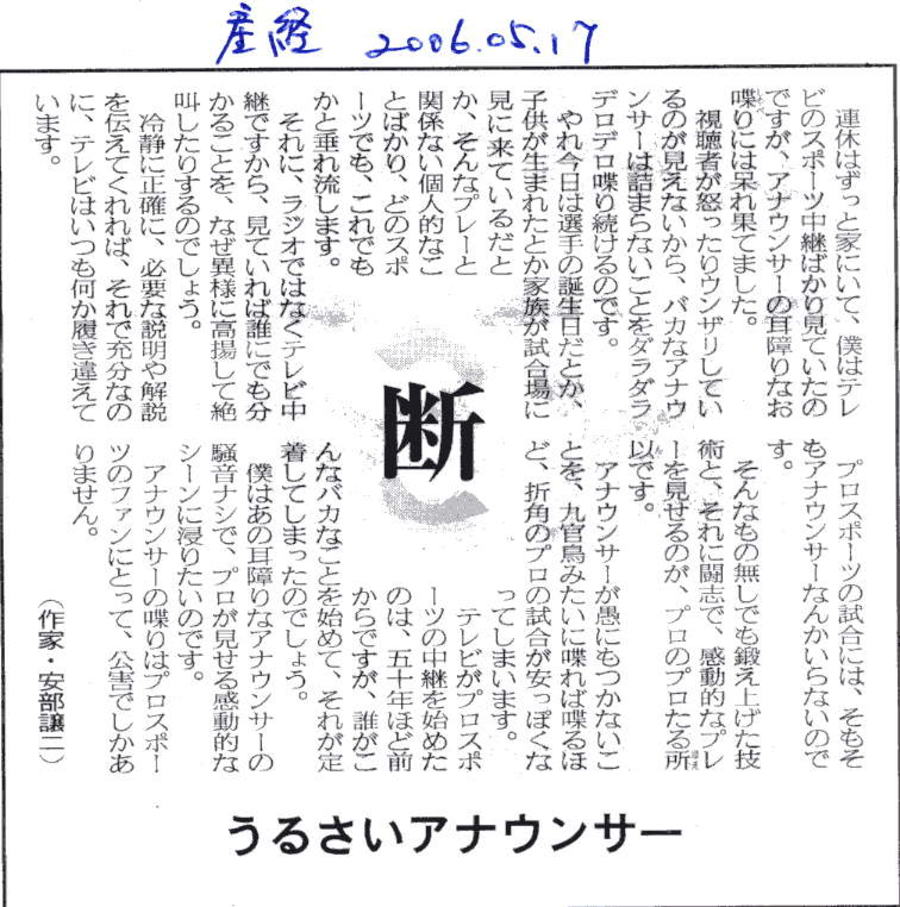 産経 2006.05.17
連休はずっと家にいて、僕はテレ
ビのスポーツ中継ばかり見ていたの
ですが、アナウンサーの耳障りなお
喋りには呆れ果てました。
視聴者が怒ったりウンザリしてい
るのが見えないから、バカなアナウ
ンサーは詰まらないことをダラダラ
デロデロ喋り続けるのです。
やれ今日は選手の誕生日だとか、
子供が生まれたとか家族が試合場に
見に来ているだと
か、そんなプレーと
関係ない個人的なこ
とばかり、どのスポ
ーツでも、これでも
かと垂れ流します。
それに、ラジオではなくテレビ中
継ですから、見ていれば誰にでも分
かることを、なぜ異様に高揚して絶
叫したりするのでしょう。
冷静に正確に、必要な説明や解説
を伝えてくれれば、それで充分なの
に、テレビはいつも何か履き違えて
います。
断
プロスポーツの試合には、そもそ
もアナウンサーなんかいらないので
す。
そんなもの無しでも鍛え上げた技
術と、それに闘志で、感動的なプレ
ーを見せるのが、プロのプロたる所
以です。
アナウンサーが愚にもつかないこ
とを、九官鳥みたいに喋れば喋るほ
ど、折角のプロの試合が安っぽくな
ってしまいます。
テレビがプロスポ
ーツの中継を始めた
のは、五十年ほど前
からですが、誰がこ
んなバカなことを始めて、それが定
着してしまったのでしょう。
僕はあの耳障りなアナウンサーの
騒音ナシで、プロが見せる感動的な
シーンに浸りたいのです。
アナウンサーの喋りはプロスポー
ツのファンにとって、公害でしかあ
りません。
(作家・安部譲二)
うるさいアナウンサー